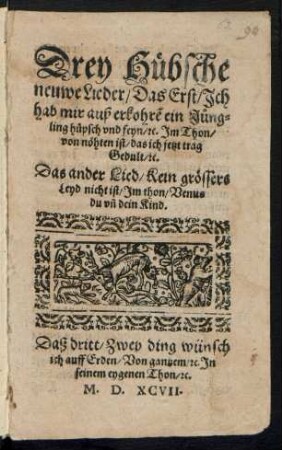 Drey Hübsche
neuwe Lieder/Das Erst/Ich
hab mir auß erkohrẽ ein Jüng-
ling hüpsch vnd feyn/ꝛc. Im Thon/
von nöhten ist/das ich jetzt trag
Gedult/ꝛc.
Das ander Lied/Kein grössers
Leyd nicht ist/Im thon/Venus
du vñ dein Kind.
Daß dritt/Zwey ding wünsch
ich auff Erden/Von gantzem/ꝛc. In
seinem eygenen Thon/ꝛc.
M. D. XCVII.